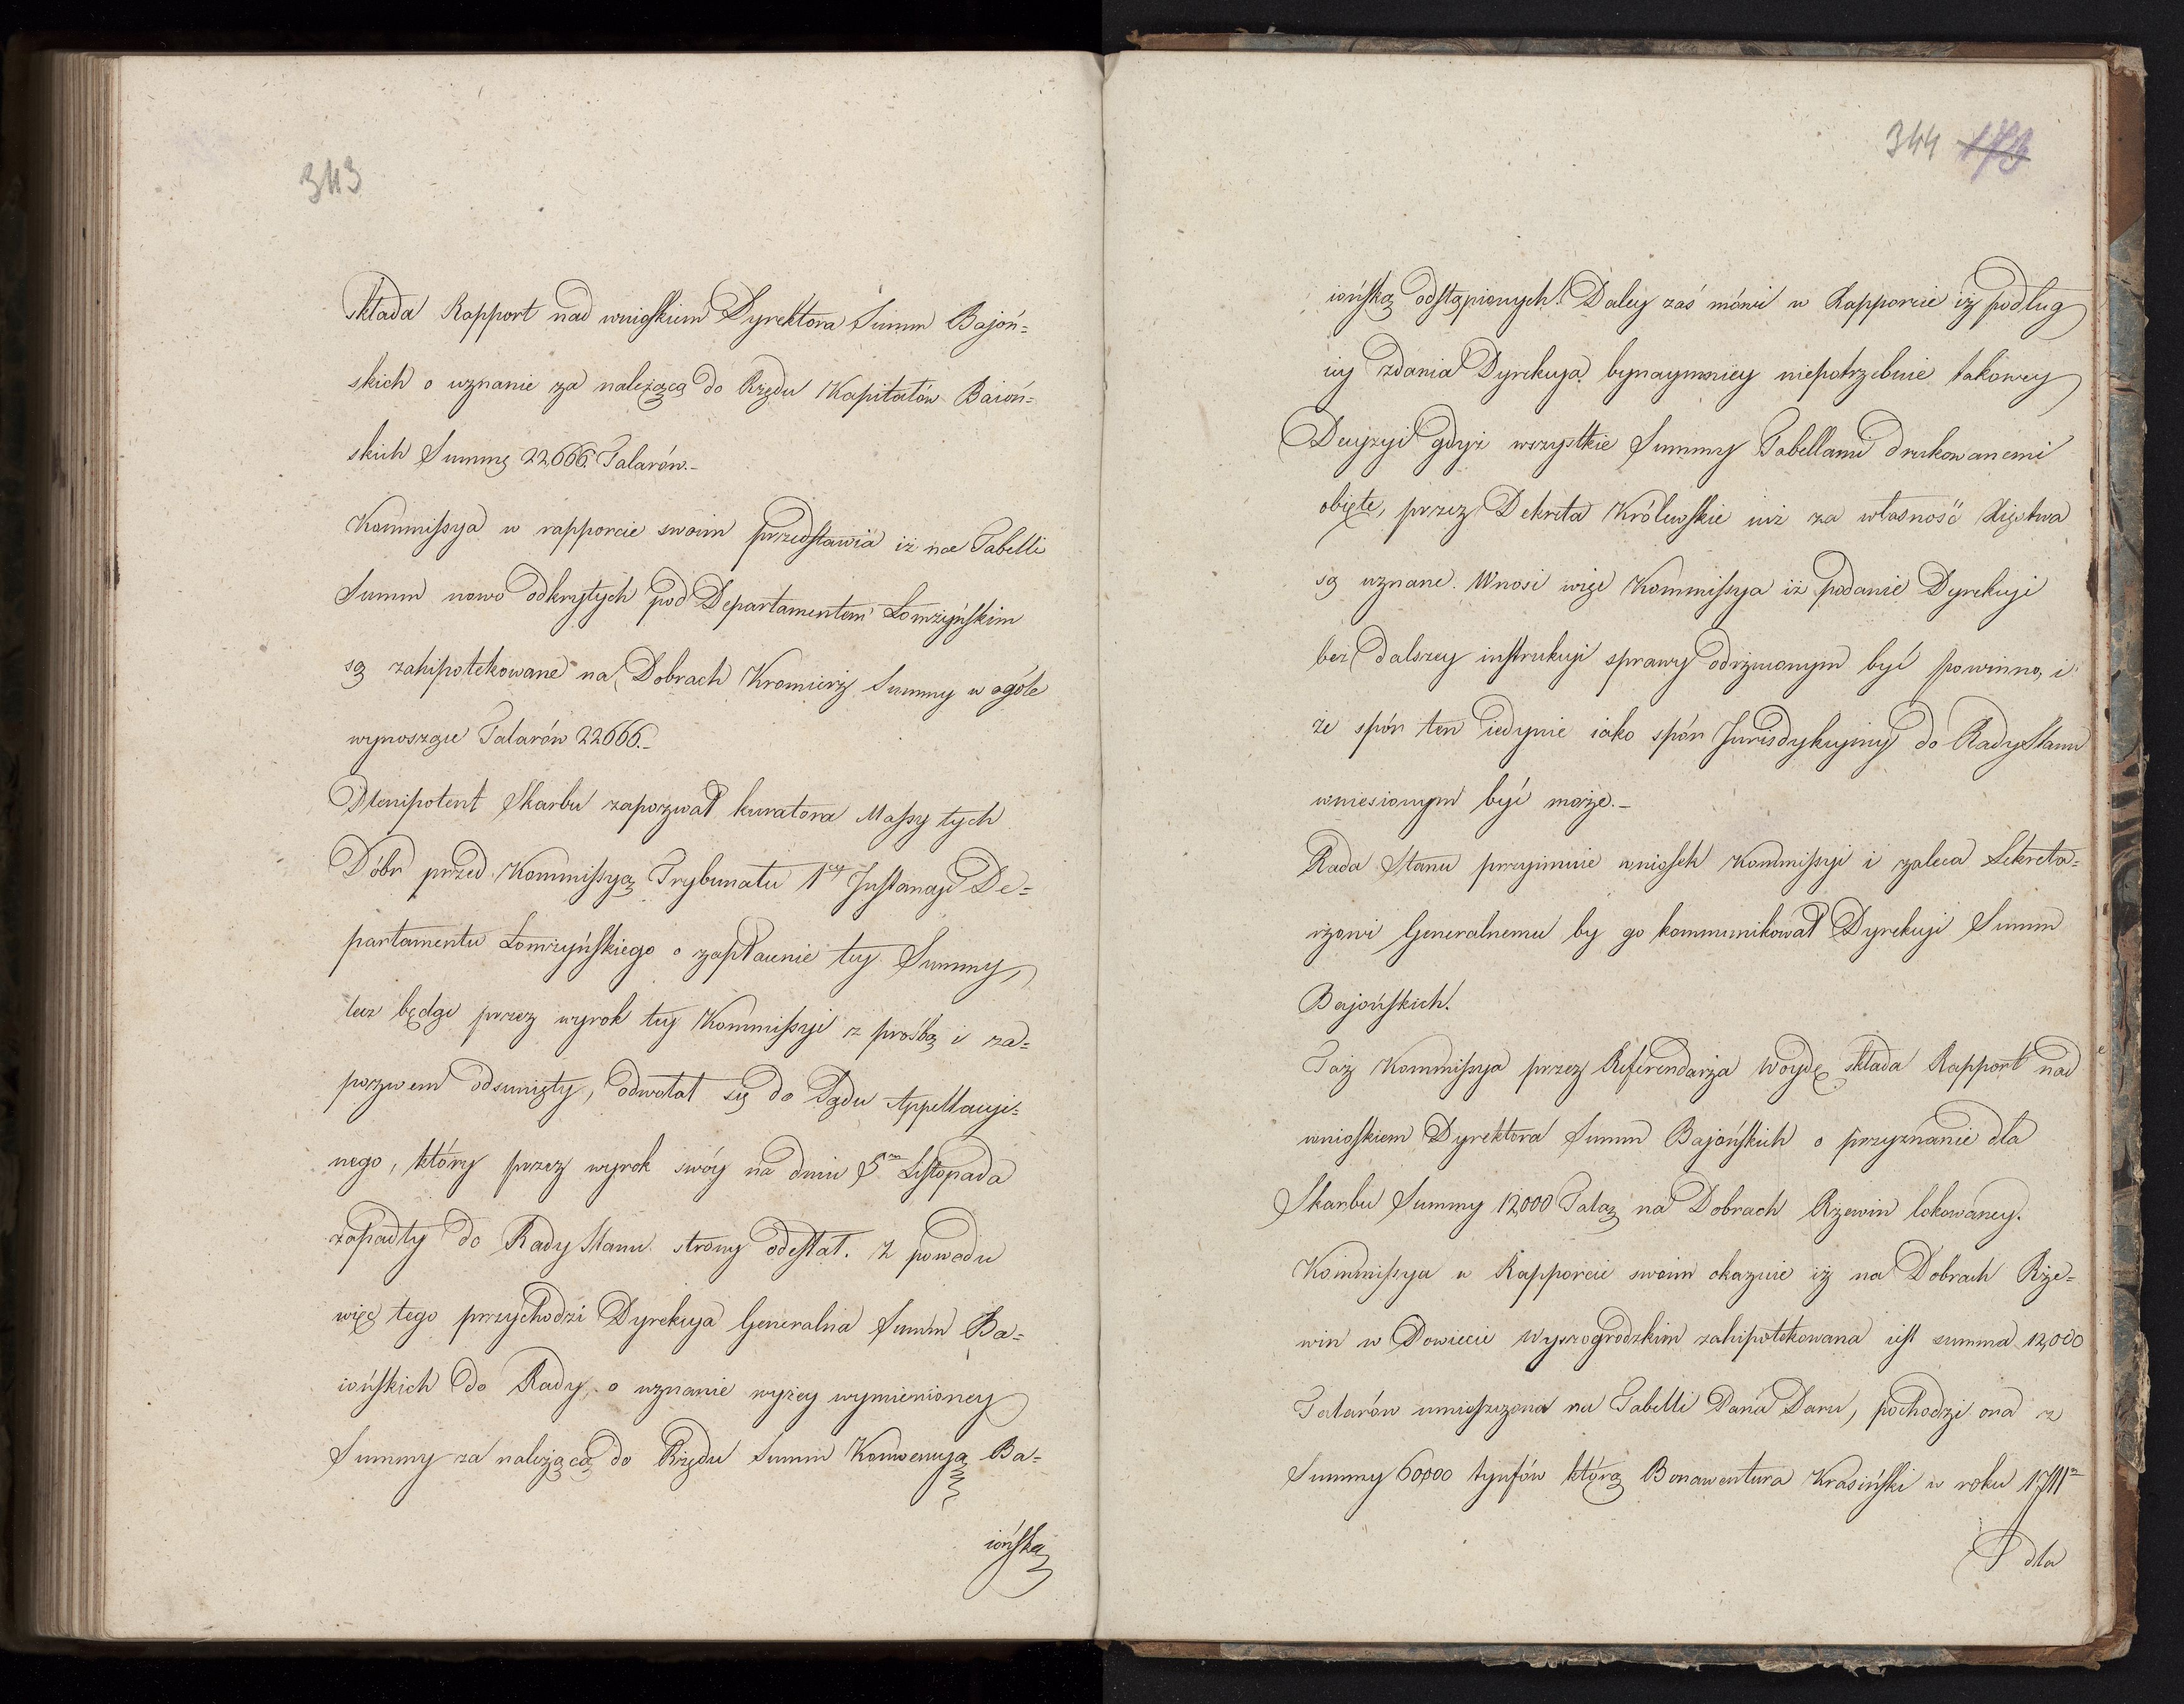 343
składa Rapport nad wnioskiem Dyrektora Summ Bajoń=
skich o uznanie za należącą do Rzędu Kapitałów Baioń=
skich Summę 22,666. Talarów.-
Kommissya w rapporcie swoim przedstawia iż na Tabelli
Summ nowo odkrytych pod Departamentem Łomżyńskim
są zahipotekowane na Dobrach Kromierz Summy w ogóle
wynoszące Talarów 22666.-
Plenipotent Skarbu zapozwał kuratora Massy tych
Dóbr przed Kommissyą Trybunału 1ey Instancyi De=
partamentu Łomżyńskiego o zapłacenie tey Summy,
lecz będąc przez wyrok tey Kommissyi z prośbą i za=
pozwem odsunięty, odwołał się do Sądu Appellacyi=
nego, który przez wyrok swóy na dniu 5m Listopada
zapadły do Rady Stanu strony odesłał. Z powodu
więc tego przychodzi Dyrekcya Generalna Summ Ba=
iońskich do Rady, o uznanie wyżey wymienioney
Summy za należącą do Rzędu Summ Konwencyą Ba=
iońską
344 173
iońską odstąpionych. Daley zaś mówi w Rapporcie iż podług
iey zdania Dyrekcya bynaymniey niepotrzebuie takowey
Decyzyi gdyż wszystkie Summy Tabellami drukowanemi
obięte, przez Dekreta Królewskie iuż za własność Xięstwa
są uznane. Wnosi więc Kommissya iż podanie Dyrekcyi
bez dalszey instrukcyi sprawy odrzuconym być powinno, i
że spór ten iedynie iako spór Jurisdykcyiny do Rady Stanu
wniesionym być może.-
Rada Stanu przyimuie wniosek Kommissyi i zaleca Sekreta=
rzowi Generalnemu by go kommunikował Dyrekcyi Summ
Bajońskich.
Taż Kommissya przez Referendarza Woydę składa Rapport nad
wnioskiem Dyrektora Summ Bajońskich o przyznanie dla
Skarbu Summy 12,000 Talar na Dobrach Rzewin lokowaney.
Kommissya w Rapporcie swoim okazuie iż na Dobrach Rze=
win w Powiecie Wyszogrodzkim zahipotekowana iest summa 12,000
Talarów umieszczona na Tabelli Pana Daru, pochodzi ona z
Summy 60,000 tynfów którą Bonawentura Krasiński w roku 1711m
dla